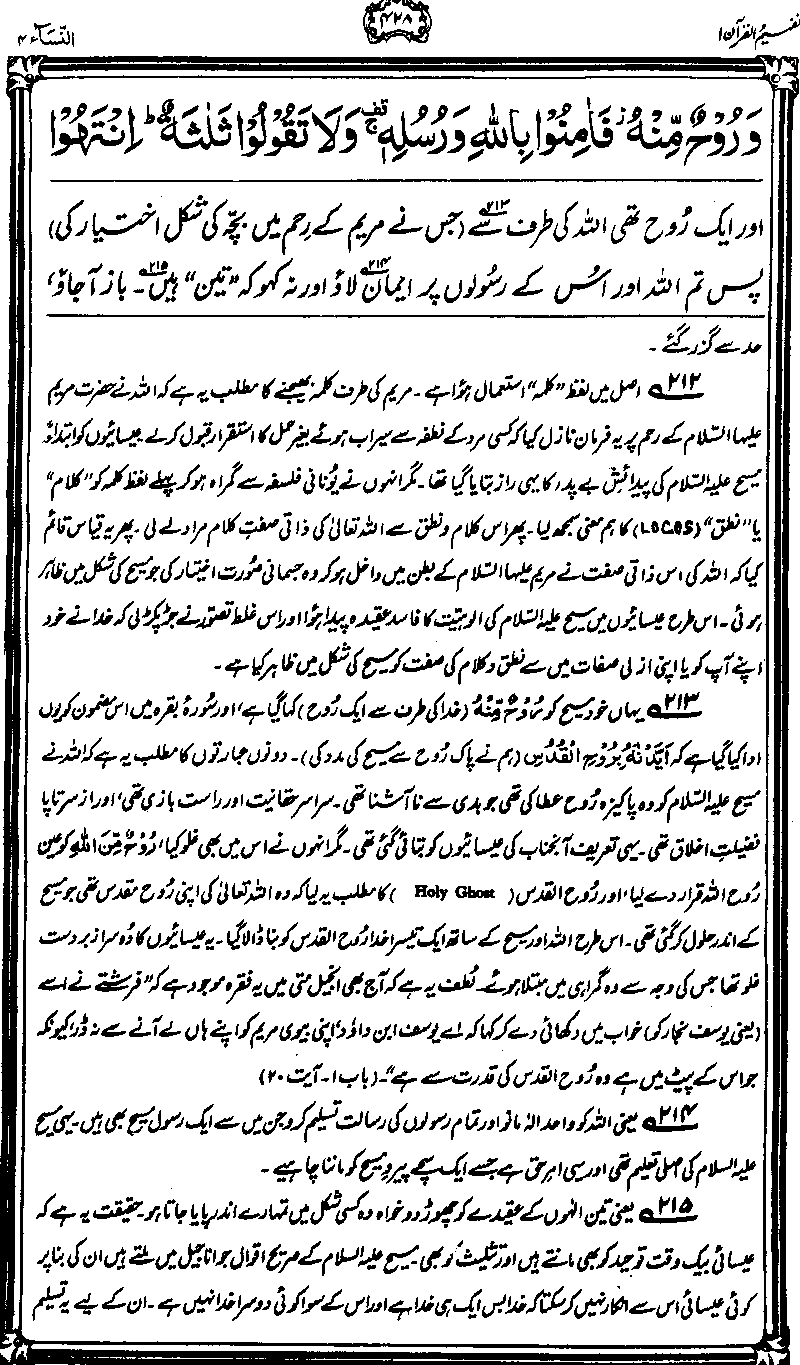 تفہیم القرآن ۱
۴۲۸
النسآء ۴
وَرُوْحٌ مِّنْهُ ۫ فَاٰمِنُوْا بِاللّٰهِ وَرُسُلِهٖ ۚ وَلَا تَقُوْلُوْا ثَلٰثَةٌ ؕ اِنْتَهُوْا
اور ایک رُوح تھی اللہ کی طرف سے۲۱۳ (جس نے مریم کے رحِم میں بچّہ کی شکل اختیار کی)
پس تم اللہ اور اُس کے رسُولوں پر ایمان۲۱۴ لاؤ اور نہ کہو کہ ”تین“ ہیں۲۱۵۔ باز آجاؤ،
حد سے گزر گئے۔
۲۱۲ اصل میں لفظ ”کلمہ“ استعمال ہؤا ہے۔ مریم کی طرف کلمہ بھیجنے کا مطلب یہ ہے کہ اللہ نے حضرت مریم
علیہا السّلام کے رحم پر یہ فرمان نازل کیا کہ کسی مرد کے نطفہ سے سیراب ہوئے بغیر حمل کا استقرار قبول کرلے۔ عیسائیوں کو ابتداءً
مسیح علیہ السّلام کی پیدائشِ بے پدر کا یہی راز بتایا گیا تھا۔ مگر انہوں نے یُونانی فلسفہ سے گمراہ ہو کر پہلے لفظ کلمہ کو ”کلام“
یا ”نطق“ (LOGOS) کا ہم معنی سمجھ لیا۔ پھر اس کلام و نطق سے اللہ تعالیٰ کی ذاتی صفتِ کلام مراد لے لی۔ پھر یہ قیاس قائم
کیا کہ اللہ کی اس ذاتی صفت نے مریم علیہا السّلام کے بطن میں داخل ہو کر وہ جسمانی صُورت اختیار کی جو مسیح کی شکل میں ظاہر
ہوئی۔ اس طرح عیسائیوں میں مسیح علیہ السّلام کی الوہیّت کا فاسد عقیدہ پیدا ہؤا اور اس غلط تصوّر نے جڑ پکڑ لی کہ خدا نے خود
اپنے آپ کو یا اپنی ازلی صفات میں سے نطق و کلام کی صفت کو مسیح کی شکل میں ظاہر کیا ہے۔
۲۱۳ یہاں خود مسیح کو رُوْحٌ مِّنْهُ (خدا کی طرف سے ایک رُوح) کہا گیا ہے، اور سُورۂ بقرہ میں اس مضمون کو یوں
ادا کیا گیا ہے کہ اَیَّدْنٰهُ بِرُوْحِ الْقُدُسِ (ہم نے پاک رُوح سے مسیح کی مدد کی)۔ دونوں عبارتوں کا مطلب یہ ہے کہ اللہ نے
مسیح علیہ السّلام کو وہ پاکیزہ رُوح عطا کی تھی جو بدی سے نا آشنا تھی۔ سراسر حقانیت اور راست بازی تھی، اور از سرتاپا
فضیلتِ اخلاق تھی۔ یہی تعریف آنجناب کی عیسائیوں کو بتائی گئی تھی۔ مگر انہوں نے اس میں بھی غلو کیا، رُوْحٌ مِّنَ اللّٰهِ کو عین
رُوح اللہ قرار دے لیا، اور رُوح القدس (Holy Ghost) کا مطلب یہ لیا کہ وہ اللہ تعالیٰ کی اپنی رُوحِ مقدس تھی جو مسیح
کے اندر حلول کر گئی تھی۔ اس طرح اللہ اور مسیح کے ساتھ ایک تیسرا خدا رُوح القدس کو بنا ڈالا گیا۔ یہ عیسائیوں کا دُوسرا زبردست
غلو تھا جس کی وجہ سے وہ گمراہی میں مبتلا ہوئے۔ لُطف یہ ہے کہ آج بھی انجیل متی میں یہ فقرہ موجود ہے کہ ”فرشتے نے اسے
(یعنی یوسف نجار کو) خواب میں دکھائی دے کر کہا کہ اے یوسف ابن داؤد، اپنی بیوی مریم کو اپنے ہاں لے آنے سے نہ ڈر، کیونکہ
جو اس کے پیٹ میں ہے وہ رُوح القدس کی قدرت سے ہے“۔ (باب ۱۔ آیت ۲۰)
۲۱۴ یعنی اللہ کو واحد الٰہ مانو اور تمام رسولوں کی رسالت تسلیم کرو جن میں سے ایک رسول مسیح بھی ہیں۔ یہی مسیح
علیہ السلام کی اصلی تعلیم تھی اور یہی امرِ حق ہے جسے ایک سچے پیرو مسیح کو ماننا چاہیے۔
۲۱۵ یعنی تین الٰہوں کے عقیدے کو چھوڑ دو خواہ وہ کسی شکل میں تمہارے اندر پایا جاتا ہو۔ حقیقت یہ ہے کہ
عیسائی بیک وقت توحید کو بھی مانتے ہیں اور تثلیث کو بھی۔ مسیح علیہ السلام کے صریح اقوال جو اناجیل میں ملتے ہیں ان کی بنا پر
کوئی عیسائی اس سے انکار نہیں کر سکتا کہ خدا بس ایک ہی خدا ہے اور اس کے سوا کوئی دوسرا خدا نہیں ہے۔ ان کے لیے یہ تسلیم